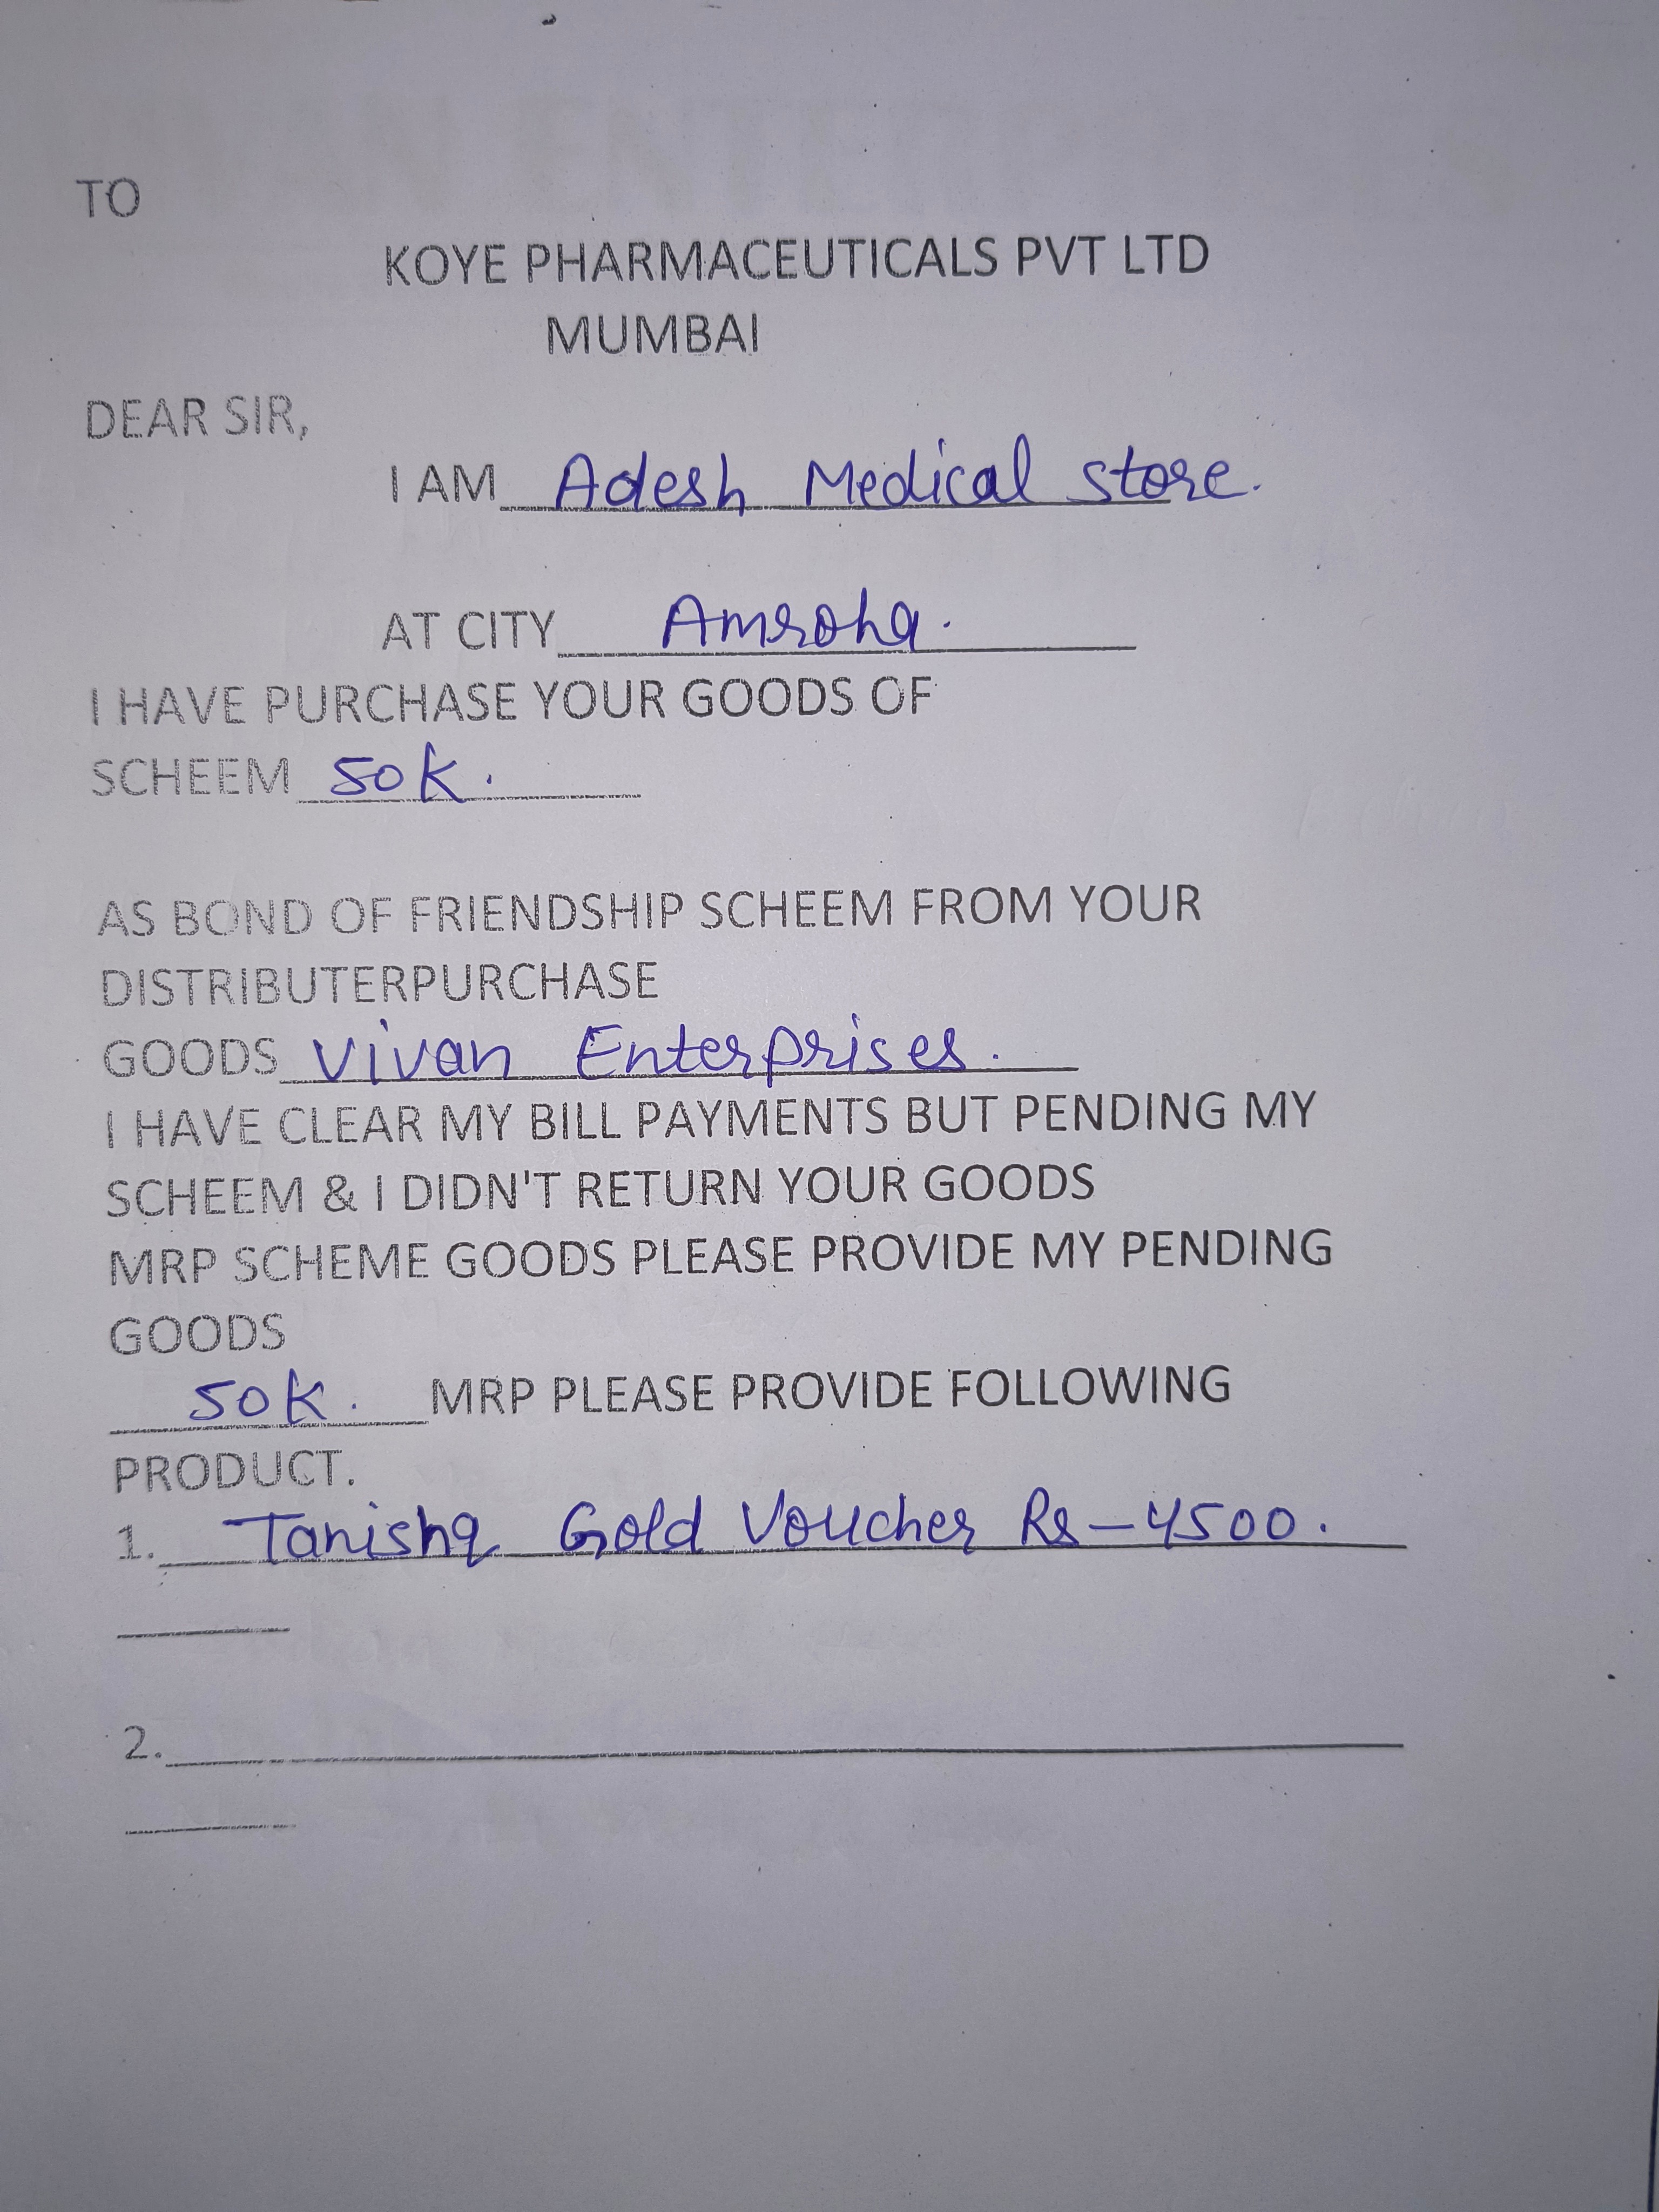 TO
KOYE PHARMACEUTICALS PVT LTD
MUMBAI
DEAR SIR,
I AM Adesh Medical store.
AT CITY Amroha.
I HAVE PURCHASE YOUR GOODS OF
SCHEEM 50K.
AS BOND OF FRIENDSHIP SCHEEM FROM YOUR
DISTRIBUTERPURCHASE
GOODS Vivan Enterprises.
I HAVE CLEAR MY BILL PAYMENTS BUT PENDING MY
SCHEEM & I DIDN'T RETURN YOUR GOODS
MRP SCHEME GOODS PLEASE PROVIDE MY PENDING
GOODS
50K. MRP PLEASE PROVIDE FOLLOWING
PRODUCT.
1. Tanishq Gold Voucher Rs-4500.
2.